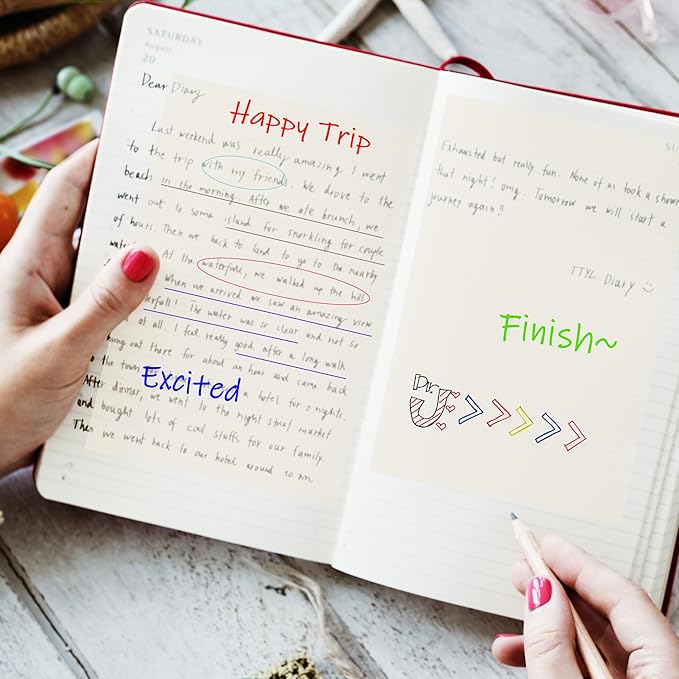 SATURDAY
August
20
Dear Diary
Happy Trip
Last weekend was really amazing I went
to the trip with my friends. We drove to the
beach in the morning. After we ate brunch, we
went out to some island for snorkling for couple
of hours. Then we back to land to go to the nearby
At the waterfall, we walked up the hill
When we arrived we saw an amazing view
The water was so clear and not so
at all. I feel really good after a long walk
hung out there for about an hour and came back
to the town a hotel for 2 nights.
Excited
After dinner, we went to the night street market
and bought lots of cool stuffs for our family.
Then we went back to our hotel around 10 pm.
SU
Exhausted but really fun. None of us took a shower
that night! omg. Tomorrow we will start a
journey again!!
TTYL Diary
Finish~
Dr.
J